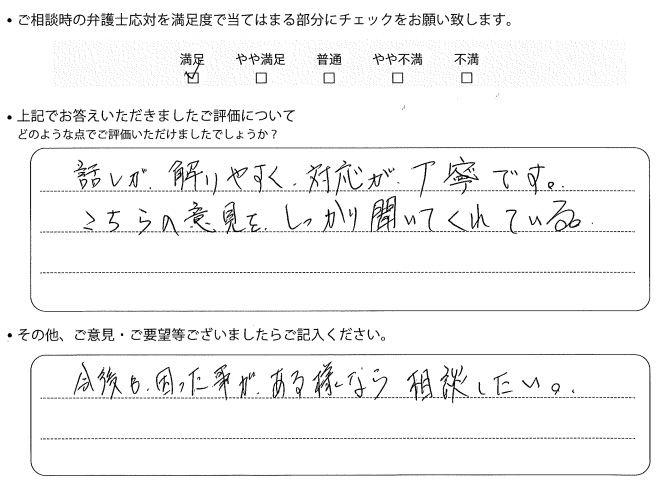 • ご相談時の弁護士応対を満足度で当てはまる部分にチェックをお願い致します。
満足 やや満足 普通 やや不満 不満
☑ □ □ □ □
• 上記でお答えいただきましたご評価について
どのような点でご評価いただけましたでしょうか？
話しが、解りやすく、対応が、丁寧です。
こちらの意見を、しっかり聞いてくれている。
• その他、ご意見・ご要望等ございましたらご記入ください。
今後も、困った事が、ある様なら 相談したい。